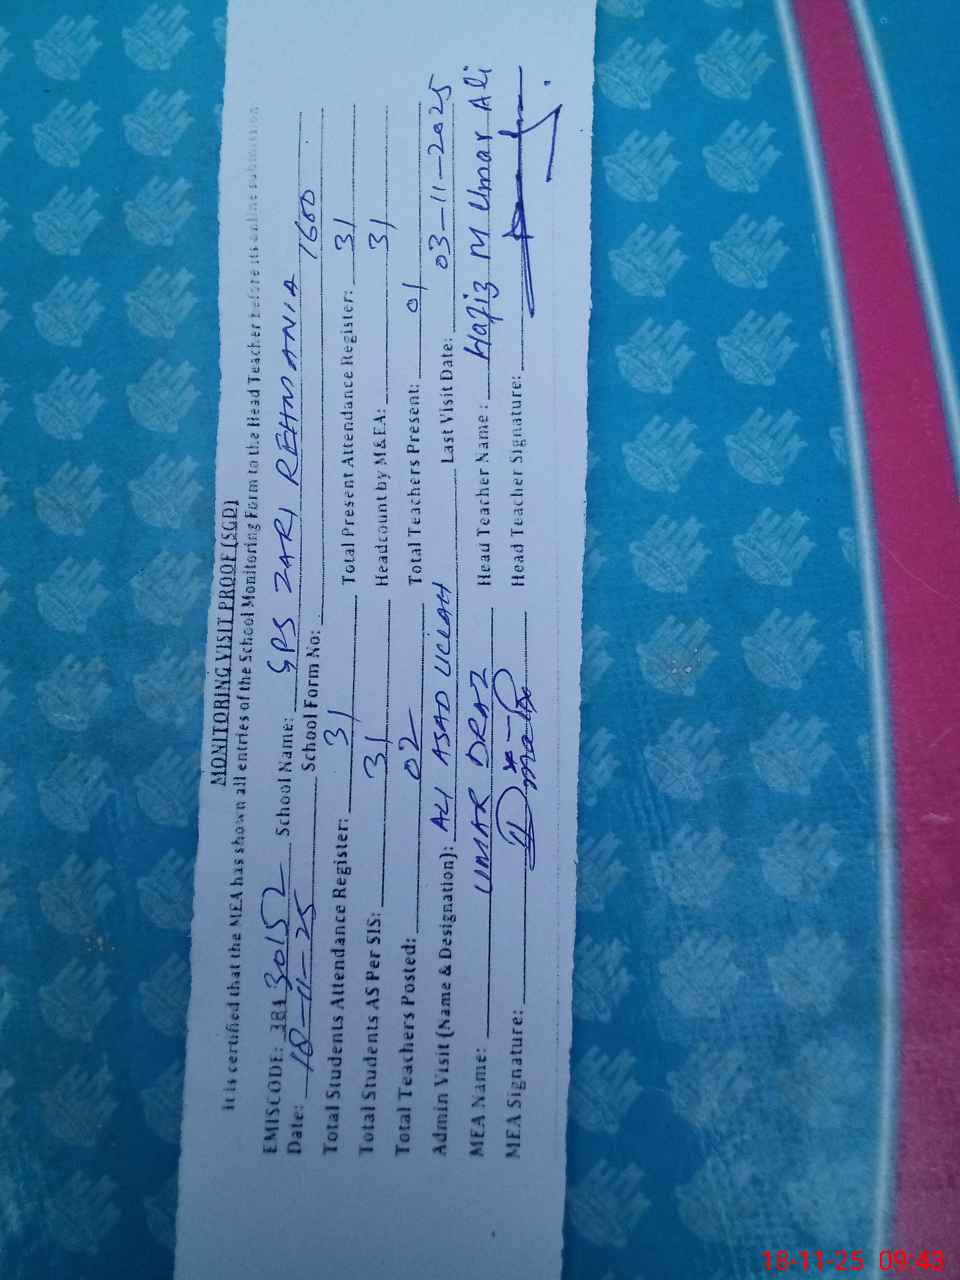 MONITORING VISIT PROOF (SGD)
It is certified that the MEA has shown all entries of the School Monitoring Form to the Head Teacher before its online submission
EMISCODE: 384 30152 School Name: GPS ZARI REHMANIA
Date: 18-11-25 School Form No: 1600
Total Students Attendance Register: 31 Total Present Attendance Register: 31
Total Students AS Per SIS: 31 Headcount by M&EA: 31
Total Teachers Posted: 02 Total Teachers Present: 01
Admin Visit (Name & Designation): ALI ASAD ULLAH Last Visit Date: 03-11-2025
MEA Name: UMAR DRAZ Head Teacher Name: Hafiz M Umar Ali
MEA Signature: Head Teacher Signature:
18-11-25 09:43